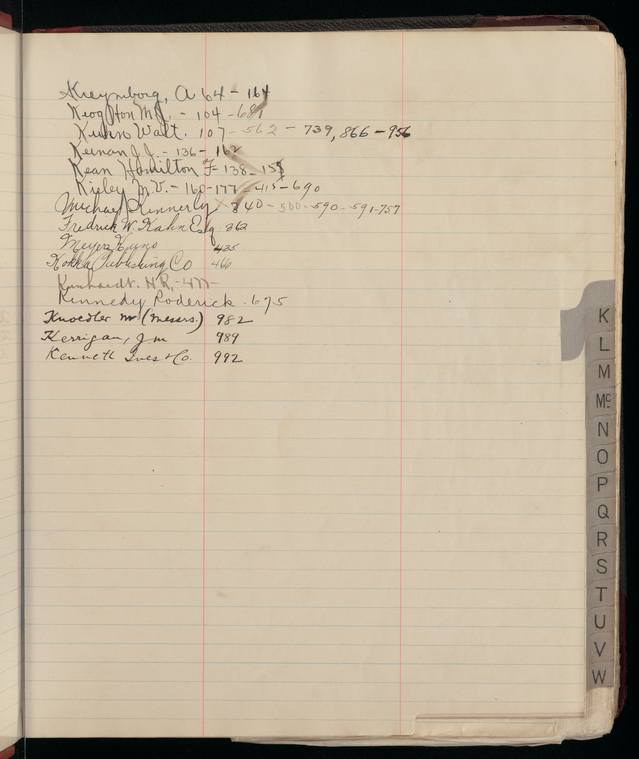 Kreymborg, A 64 - 164
Keog Hon M.J. - 104 - 681
Kuhn Walt. 107 - 562 - 739, 866 - 956
Keenan J.J. - 136 - 162
Kean Hamilton F - 138 - 155
Kieley M.V. - 160 - 177 - 415 - 690
Michael Kennerly 340 - 500 - 590 - 591 - 757
Fredrick W. Kahn Esq 362
Meyer Kuno 435
Kokka Publishing Co 466
Kunhardt. H.R. - 477 -
Kennedy Roderick - 675
Knoedler M (Messrs.) 982
Kerrigan, J m 989
Kenneth Ives & Co. 992
K
L
M
Mc
N
O
P
Q
R
S
T
U
V
W